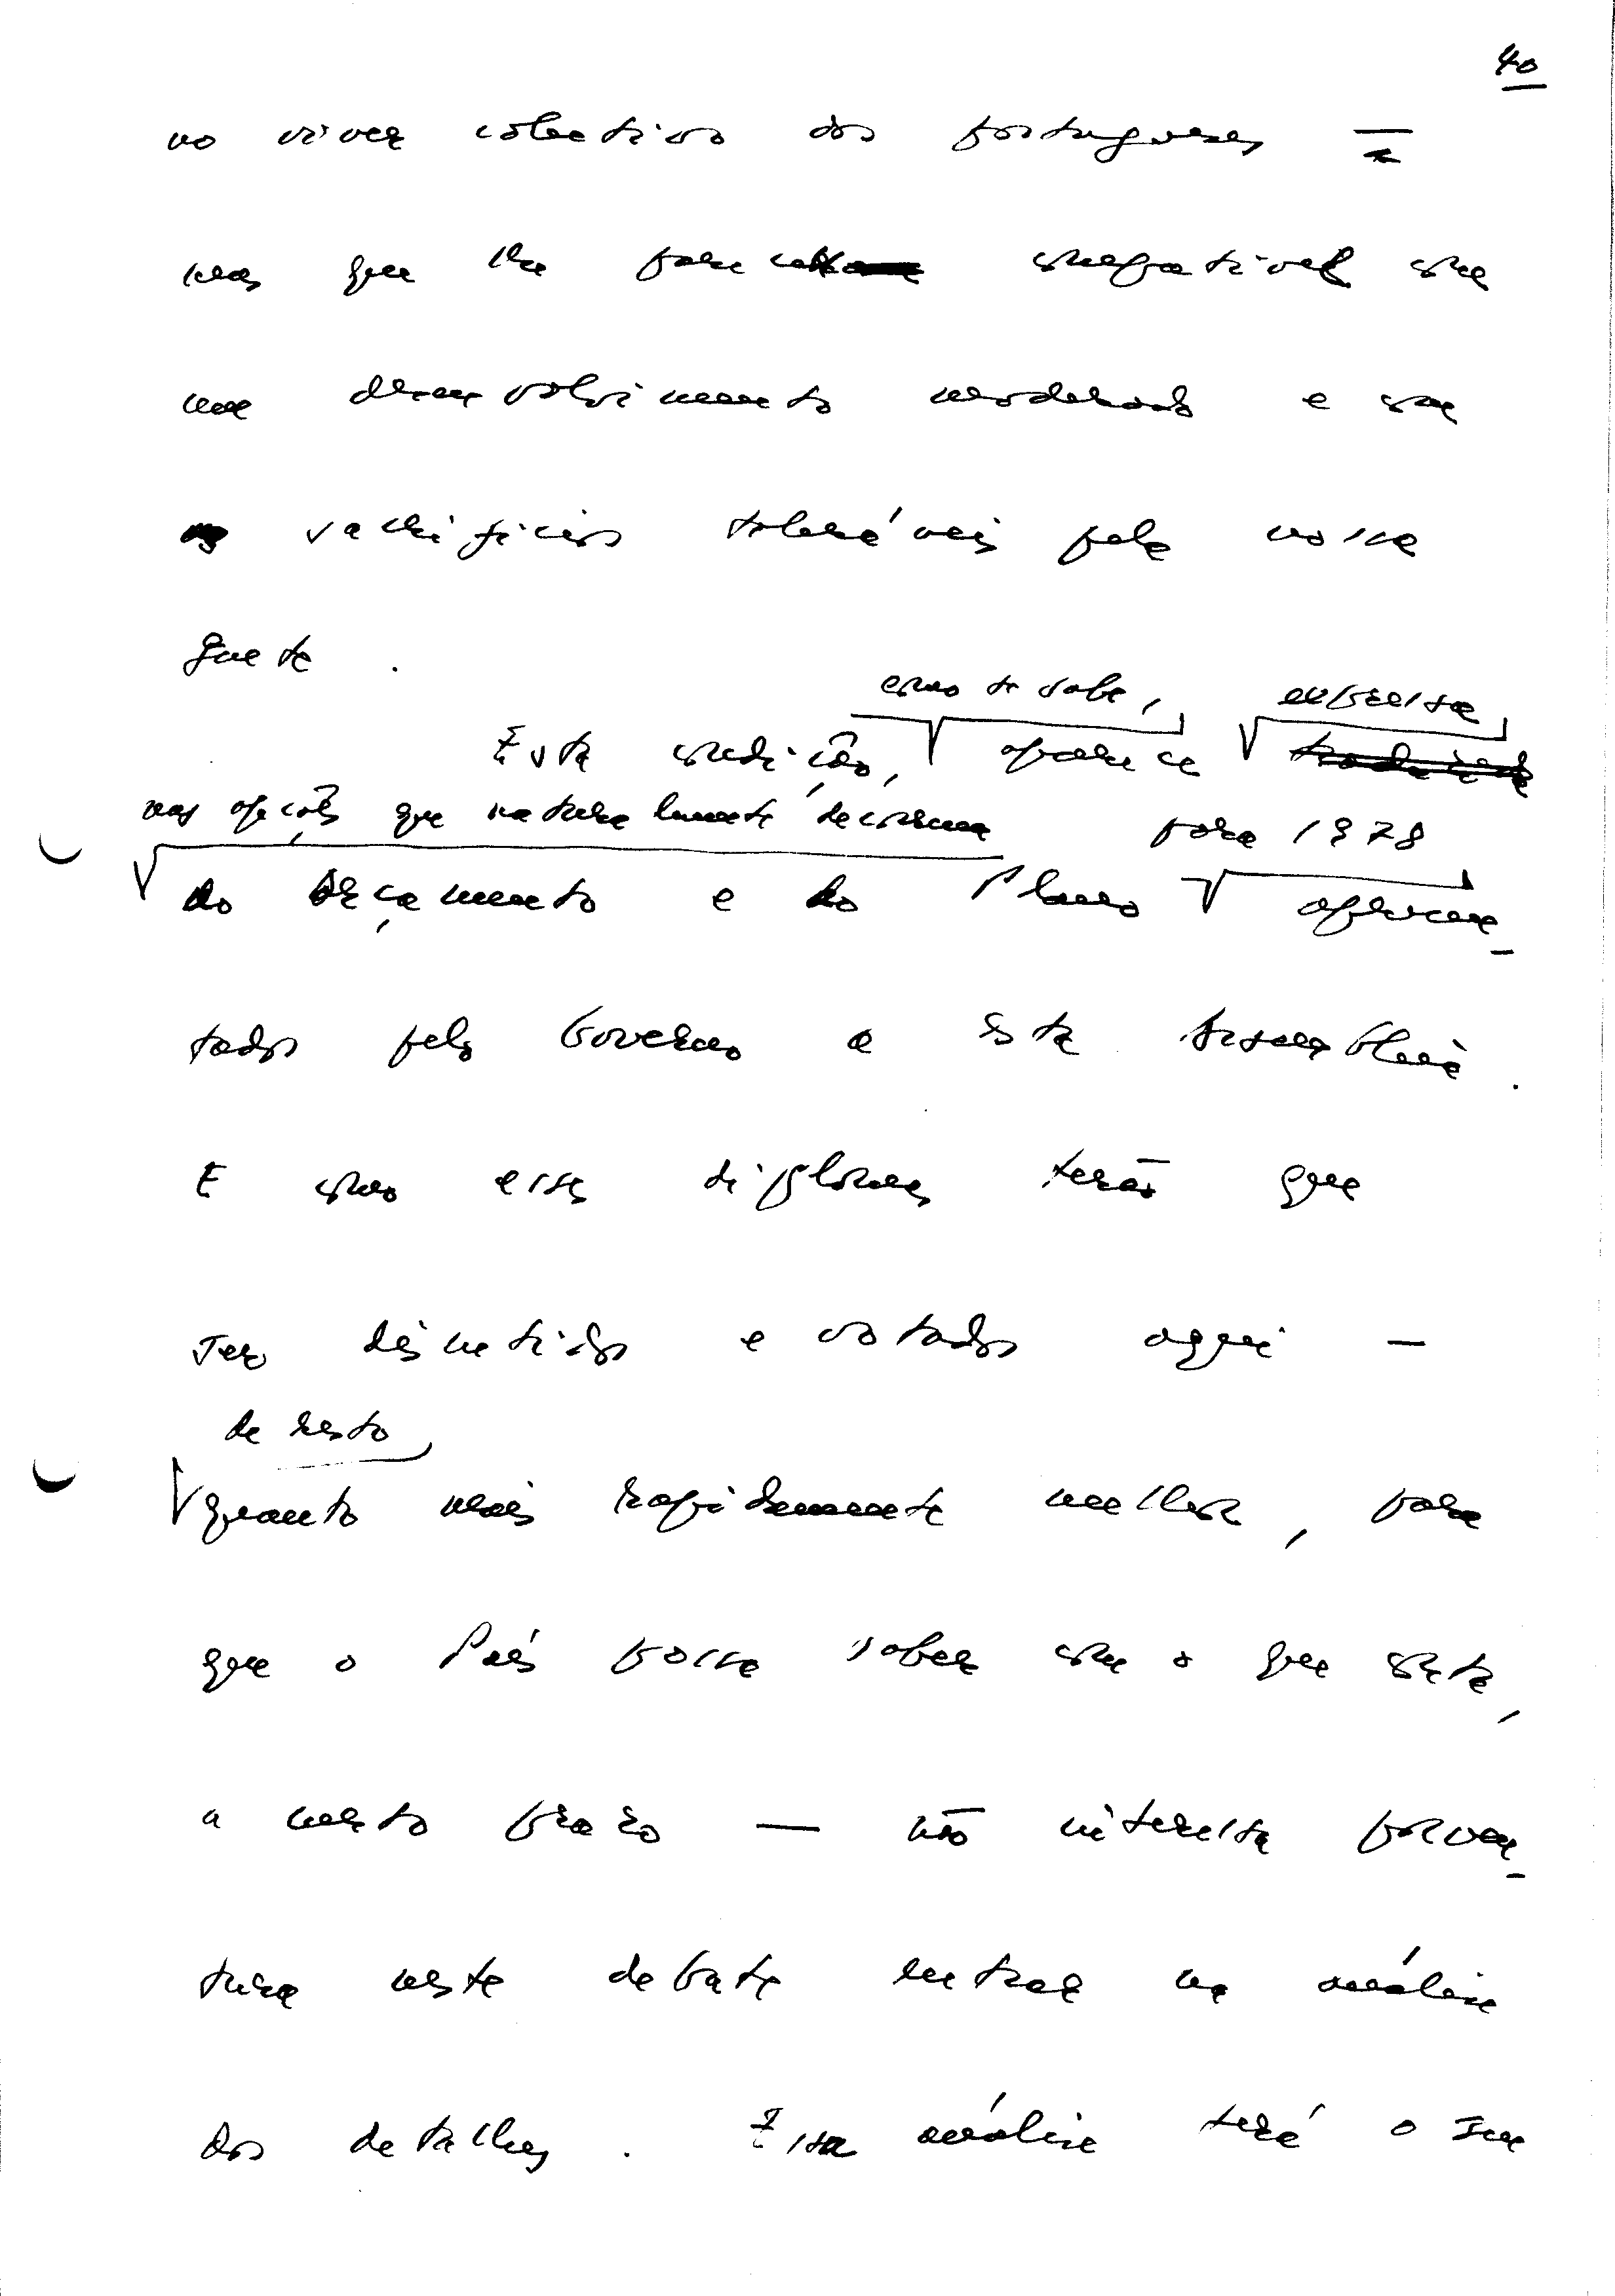 40
no viver colectivo dos portugueses —
mas que lhe parece compatível com
um desenvolvimento moderado e com
sacrifícios toleráveis pela nossa
gente.
como se sabe, expressa
Esta condição, aparece
nas opções que naturalmente decorrem para 1978
do Orçamento e do Plano apresen-
tados pelo Governo a esta Assembleia.
E como esses diplomas terão que
ser discutidos e votados aqui —
de resto
quanto mais rapidamente melhor, para
que o País possa saber com o que conta,
a curto prazo — não interessa porven-
tura neste debate entrar na análise
dos detalhes. Essa análise terá o seu